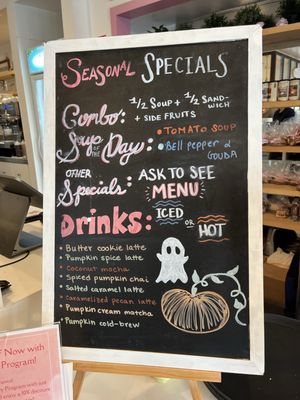 Seasonal Specials
Combo: 1/2 Soup + 1/2 Sand-
wich
+ side fruits
Soup of the Day:
• Tomato Soup
• Bell pepper &
Gouda
Other
Specials:
Ask to see
Menu
Drinks:
Iced or Hot
• Butter cookie latte
• Pumpkin spice latte
• Coconut mocha
• Spiced pumpkin chai
• Salted caramel latte
• Caramelized pecan latte
• Pumpkin cream matcha
• Pumpkin cold-brew
Now with
Program!